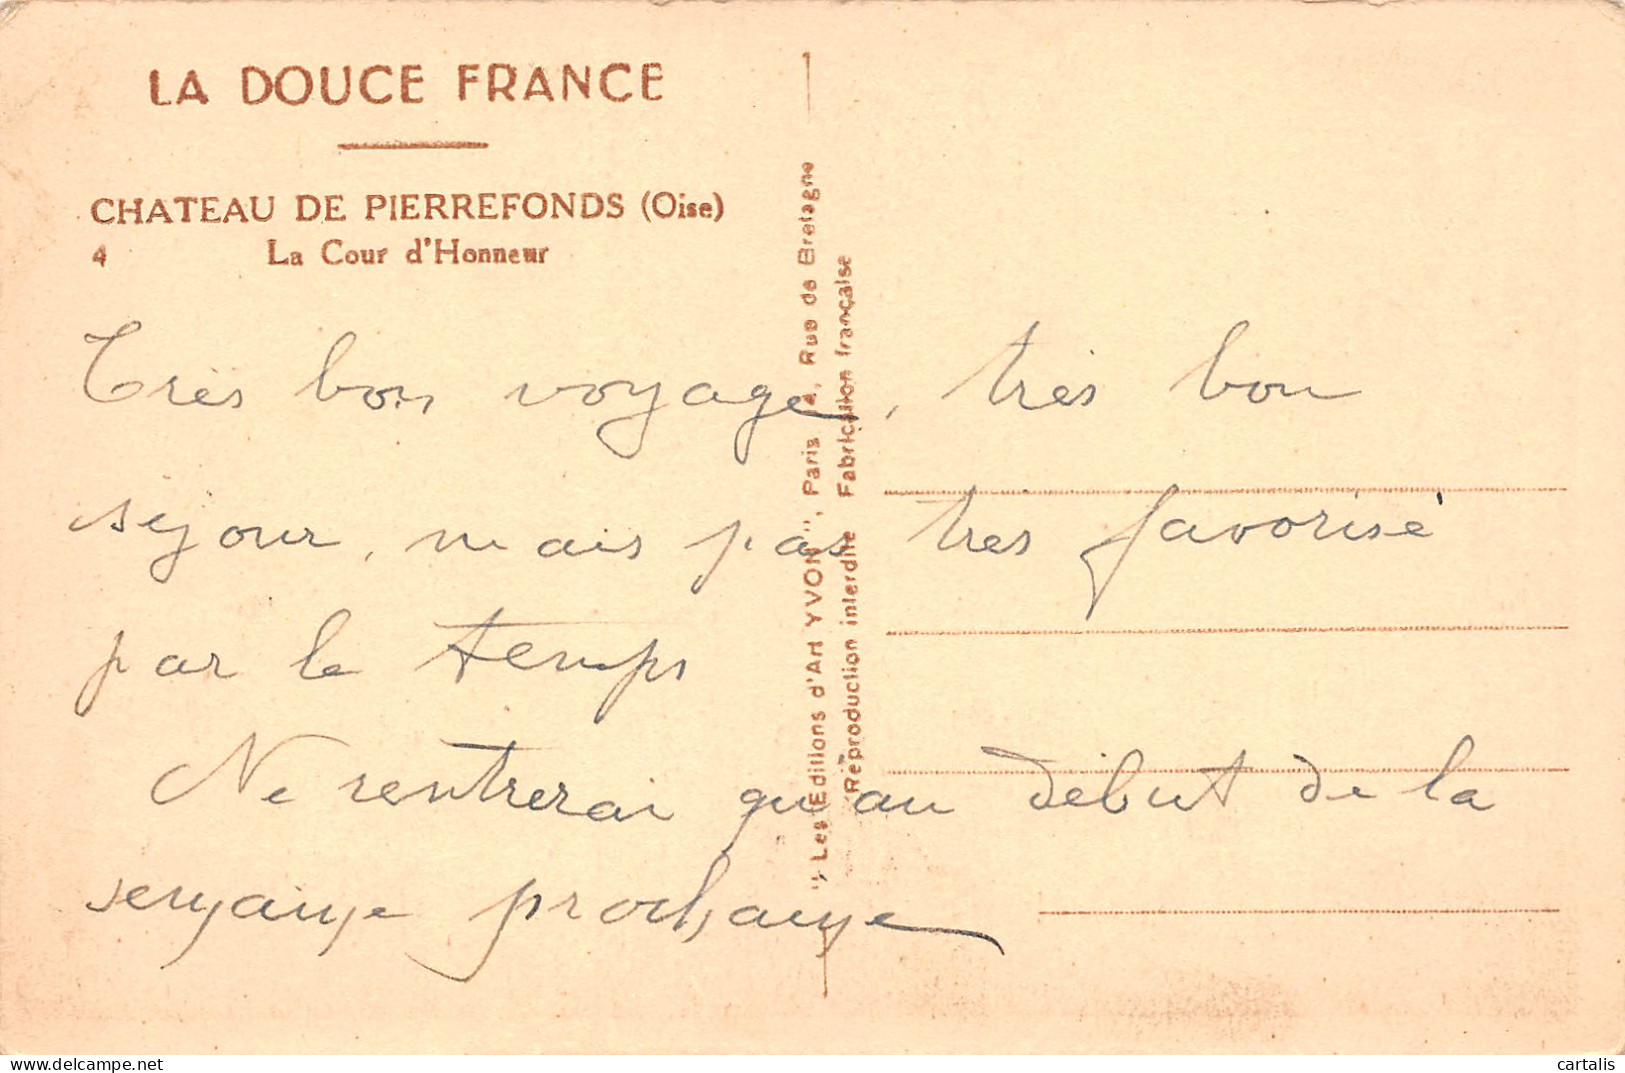 LA DOUCE FRANCE
CHATEAU DE PIERREFONDS (Oise)
4 La Cour d'Honneur
Très bon voyage, très bon
séjour, mais pas très favorisé
par le temps
Ne rentrerai qu'au début de la
semaine prochaine
"Les Editions d'Art YVON", Paris 4, Rue de Bretagne
Reproduction interdite Fabrication française
cartalis